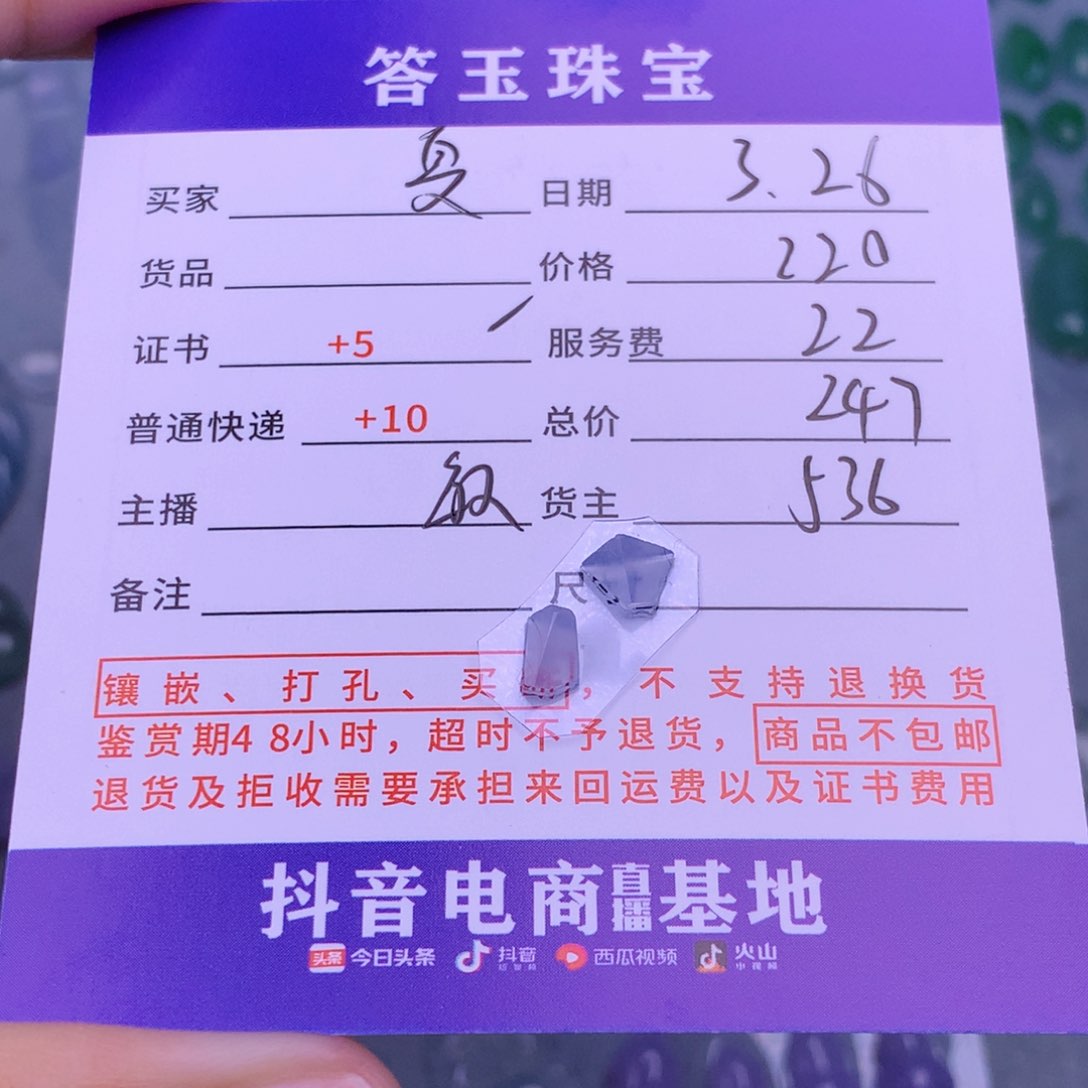 答玉珠宝
买家 夏 日期 3.26
货品 价格 220
证书 +5 服务费 22
普通快递 +10 总价 247
主播 敏 货主 536
备注 尺
镶嵌、打孔、买 ，不支持退换货
鉴赏期48小时，超时不予退货，商品不包邮
退货及拒收需要承担来回运费以及证书费用
抖音电商直播基地
头条 今日头条 抖音 西瓜视频 火山